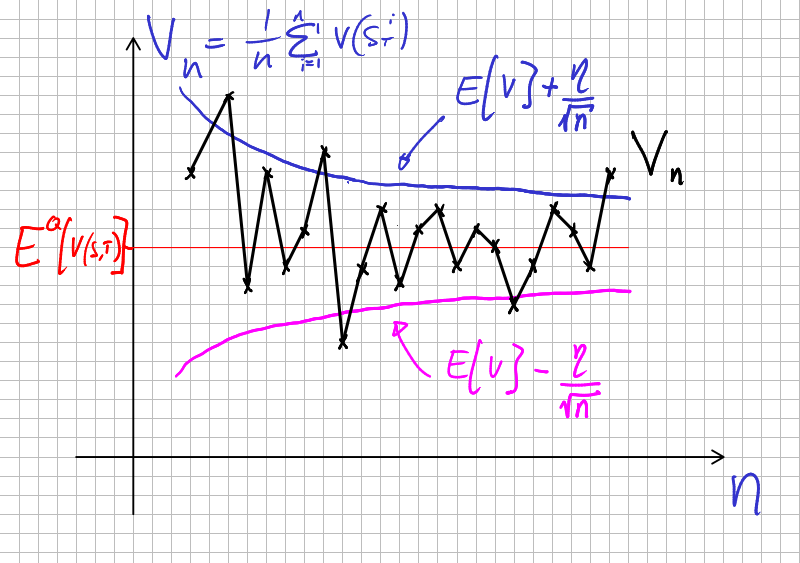 Vₙ = 1/n Σᵢ₌₁ⁿ V(Sᵢⁱ)
E[V] + η/√n
Vₙ
E^Q[V(S,T)]
E[V] − η/√n
n